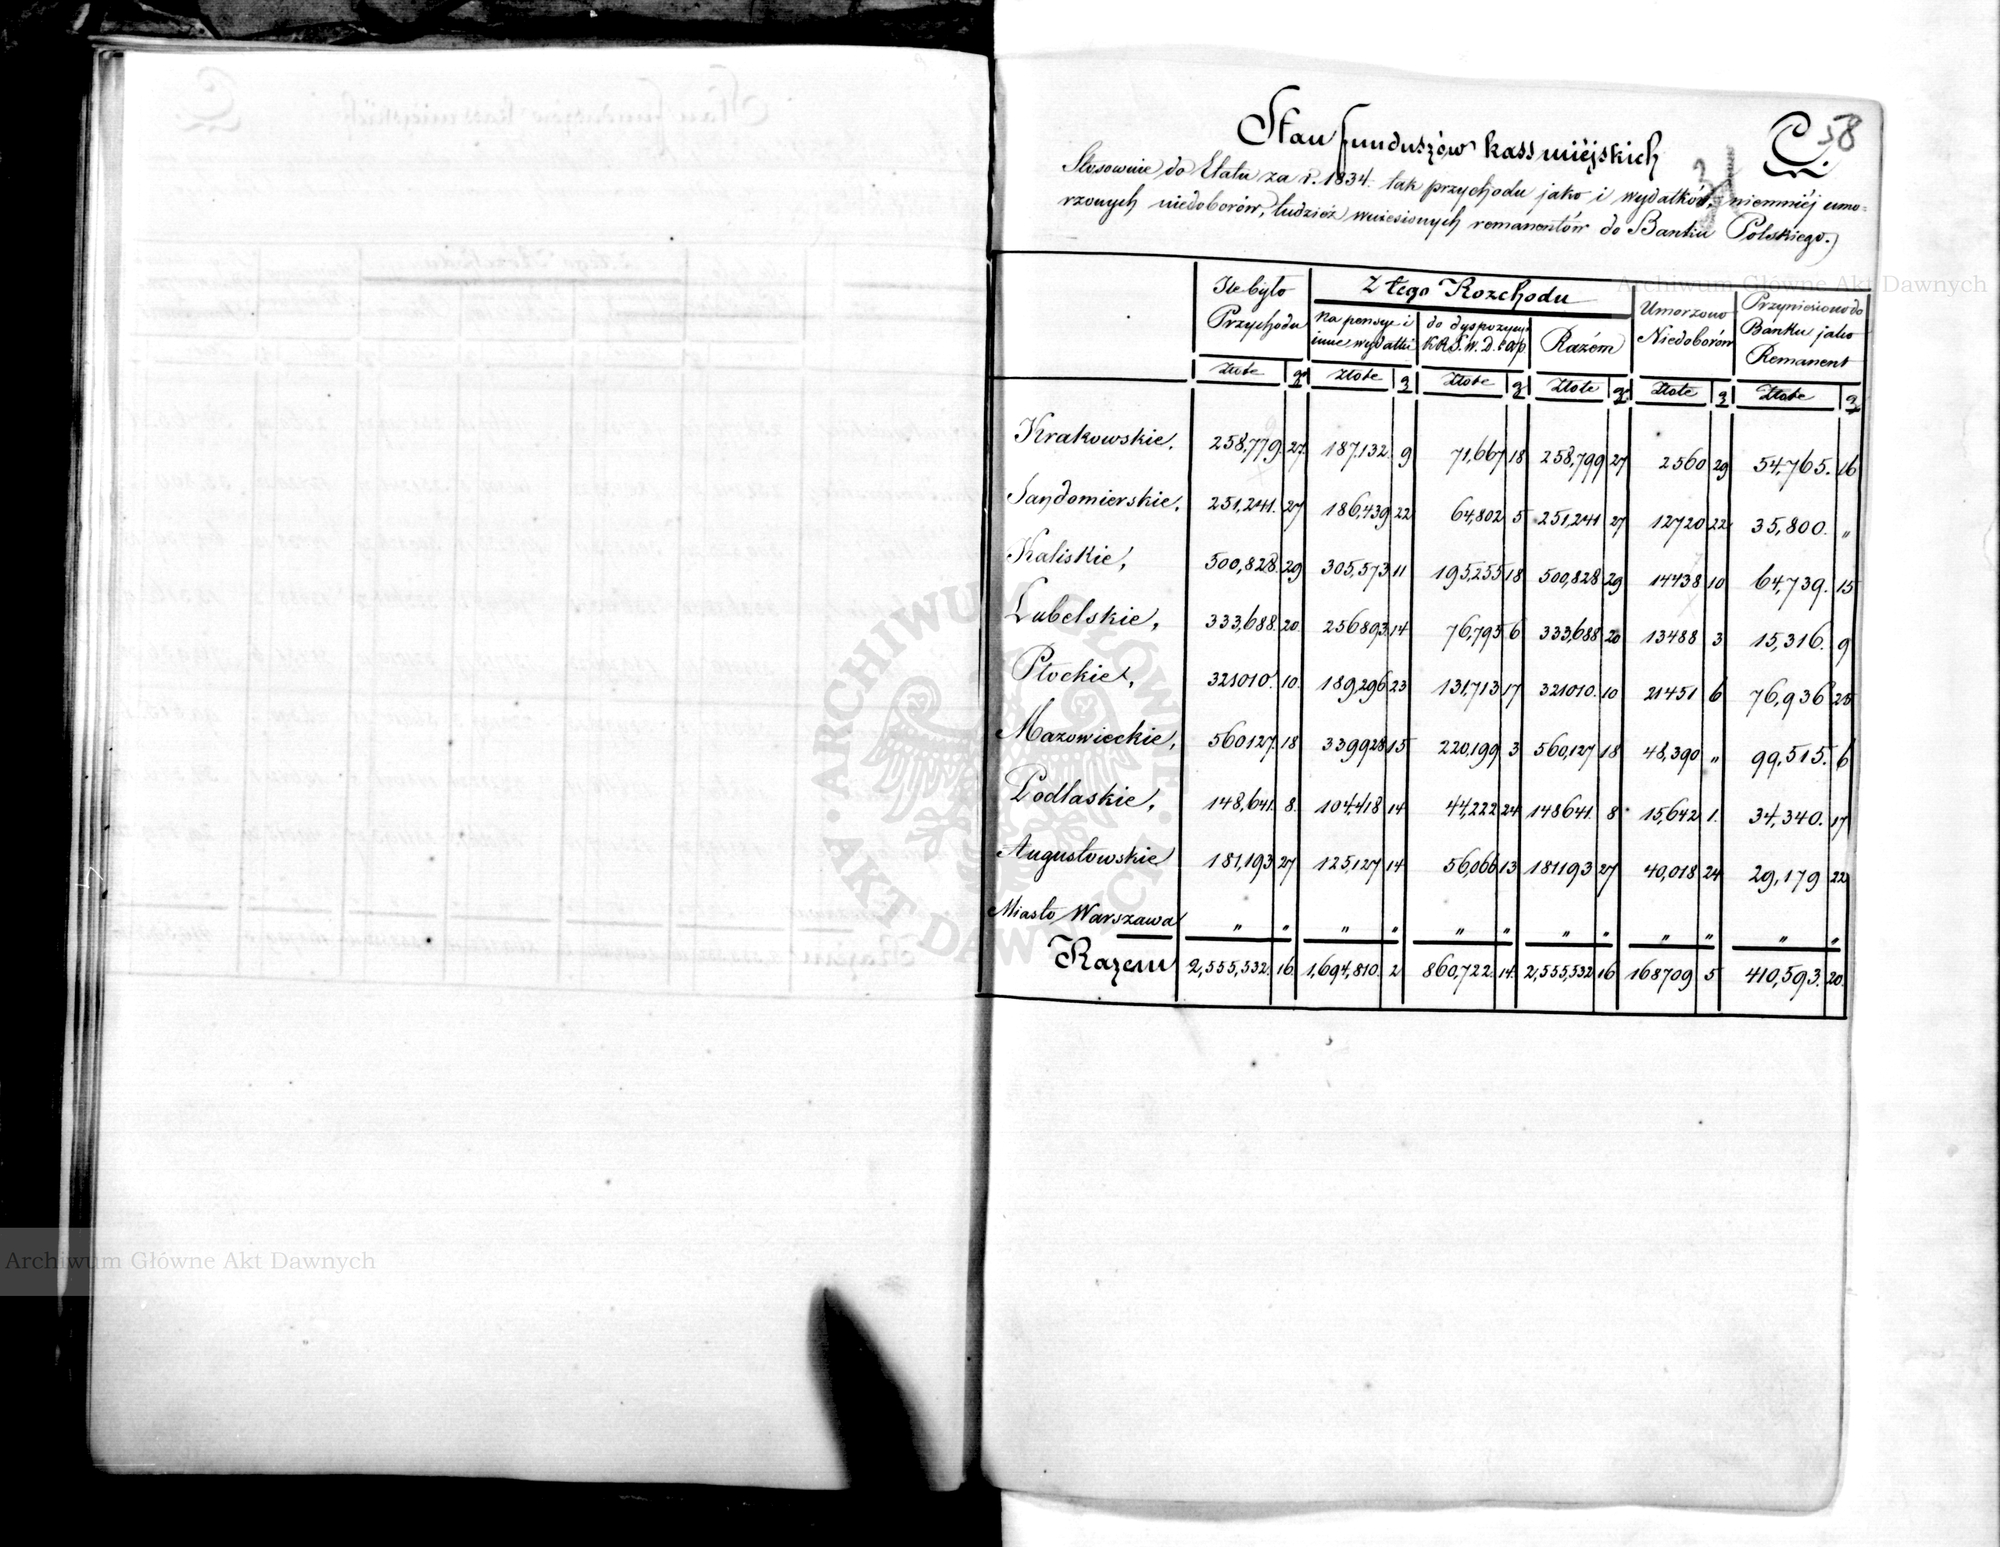 Stan funduszów kass miejskich
C. 58
Stosownie do Etatu za r. 1834 tak przychodu jako i wydatków, niemniéj umo=
rzonych niedoborów, tudzież wniesionych remanentów do Banku Polskiego.)
Ile było Przychodu | Z tego Rozchodu | Umorzono Niedoborów | Przyniesiono do Banku jako Remanent
na pensye i inne wydatki | do dyspozycyi K.R.S.W.D. i O.P. | Razém
Złote | gr | Złote | g | Złote | g | Złote | gr | Złote | g | Złote | g
Krakowskie, 258,779. 27. 187,132. 9 71,667 18 258,799 27 2560 29 54,765. 16
Sandomierskie, 251,241. 27 186,439 22 64,802 5 251,241 27 12720 22 35,800. „
Kaliskie, 500,828. 29 305,573 11 195,255 18 500,828 29 14438 10 64,739. 15
Lubelskie, 333,688. 20 256893 14 76,795 6 333,688 20 13488 3 15,316. 9
Płockie, 321010. 10. 189,296 23 131,713 17 321010. 10 21451 6 76,936 25
Mazowieckie, 560127. 18 339928 15 220,199 3 560,127 18 48,390 „ 99,515. 6
Podlaskie, 148,641. 8. 104418 14 44,222 24 148641. 8 15,642 1. 34,340. 17
Augustowskie 181,193 27 125,127 14 56,066 13 181193 27 40,018 24 29,179 22
Miasto Warszawa „ „ „ „ „ „ „ „ „ „ „ „
Razem 2,555,532. 16. 1,694,810. 2 860,722. 14. 2,555,532 16 168709 5 410,593. 20.
Archiwum Główne Akt Dawnych
Archiwum Główne Akt Dawnych
ARCHIWUM GŁÓWNE · AKT DAWNYCH ·